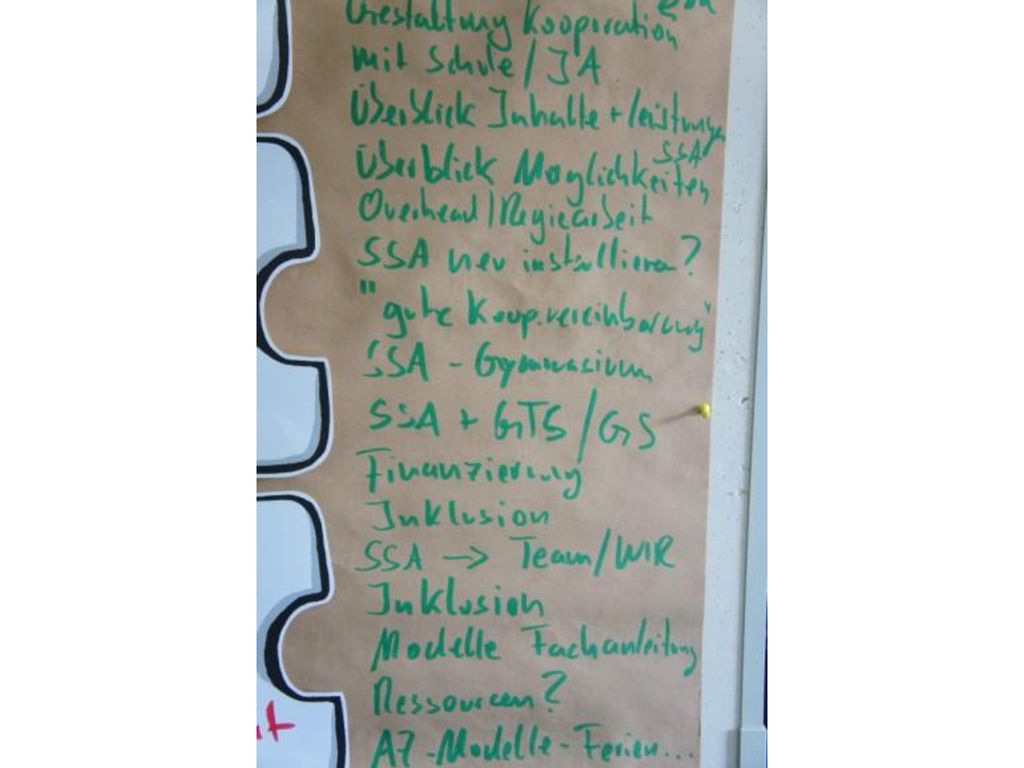 Gestaltung Kooperation
mit Schule/JA
Überblick Inhalte + Leistungen
SSA
Überblick Möglichkeiten
Overhead/Regiearbeit
SSA neu installieren?
"gute Koop.vereinbarung"
SSA - Gymnasium
SSA + GTS/GS
Finanzierung
Inklusion
SSA → Team/WIR
Inklusion
Modelle Fachanleitung
Ressourcen?
AZ-Modelle-Ferien...